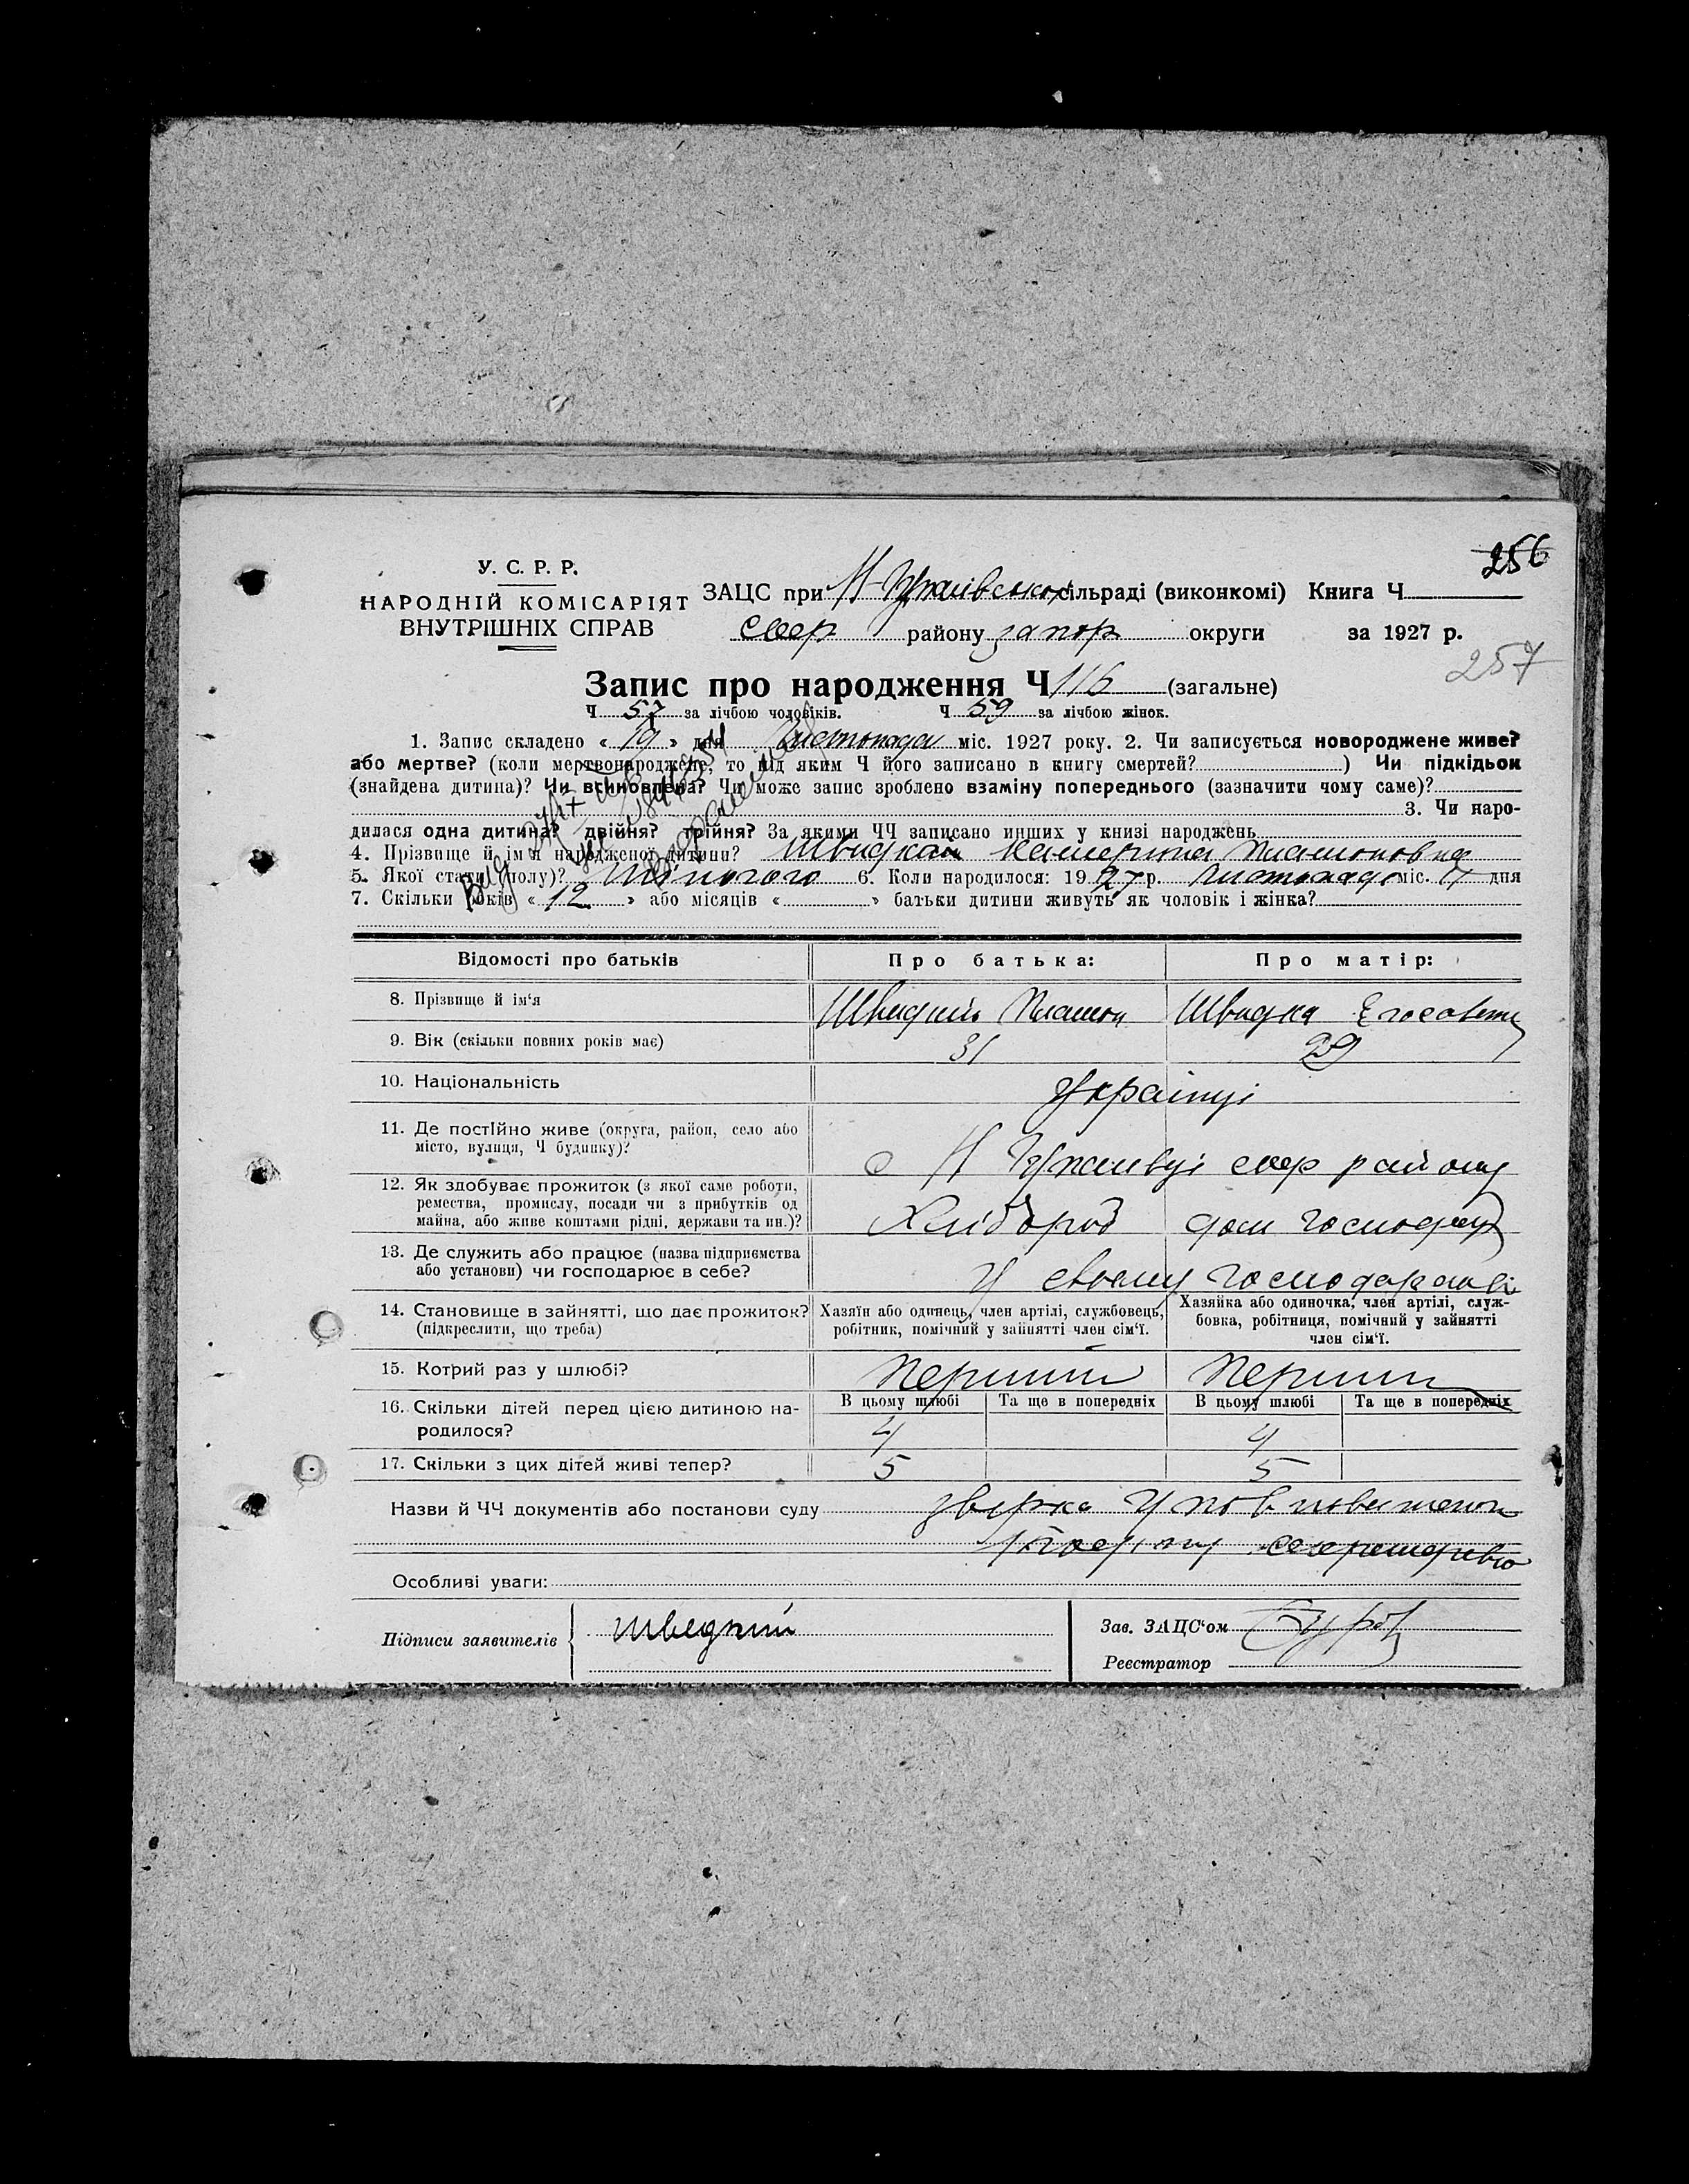 256
У. С. Р. Р.
НАРОДНІЙ КОМІСАРІЯТ
ВНУТРІШНІХ СПРАВ
ЗАЦС при сільраді (виконкомі) Книга Ч
району запор округи за 1927 р.
257
Запис про народження Ч 116 (загальне)
Ч 57 за лічбою чоловіків. Ч 59 за лічбою жінок.
1. Запис складено « 19 » дня Листопада міс. 1927 року. 2. Чи записується новороджене живе?
або мертве? (коли мертвонароджене, то під яким Ч його записано в книгу смертей? ) Чи підкідьок
(знайдена дитина)? Чи всиновлена? Чи може запис зроблено взаміну попереднього (зазначити чому саме)?
3. Чи наро-
дилася одна дитина? двійня? трійня? За якими ЧЧ записано инших у книзі народжень
4. Прізвище й ім'я народженої дитини? Швидкая Катерина Платоновна
5. Якої стати (полу)? Жіночого 6. Коли народилося: 1927 р. Листопада міс. дня
7. Скільки років « 12 » або місяців « » батьки дитини живуть як чоловік і жінка?
Відомості про батьків Про батька: Про матір:
8. Прізвище й ім'я Швидкий Платон Швидка
9. Вік (скільки повних років має) 31 29
10. Національність Українці
11. Де постійно живе (округа, район, село або
місто, вулиця, Ч будинку)? с району
12. Як здобуває прожиток (з якої саме роботи,
ремества, промислу, посади чи з прибутків од
майна, або живе коштами рідні, держави та ин.)? Хлібороб дом господар
13. Де служить або працює (назва підприємства
або установи) чи господарює в себе? У своему господарстві
14. Становище в зайнятті, що дає прожиток?
(підкреслити, що треба)
Хазяїн або одинець, член артілі, службовець,
робітник, помічний у зайнятті член сім'ї.
Хазяйка або одиночка, член артілі, служ-
бовка, робітниця, помічний у зайнятті
член сім'ї.
15. Котрий раз у шлюбі? Перший Перший
16. Скільки дітей перед цією дитиною на-
родилося?
В цьому шлюбі Та ще в попередніх В цьому шлюбі Та ще в попередніх
4 4
17. Скільки з цих дітей живі тепер? 5 5
Назви й ЧЧ документів або постанови суду
Особливі уваги:
Підписи заявителів Шведкий
Зав. ЗАЦС'ом
Реєстратор